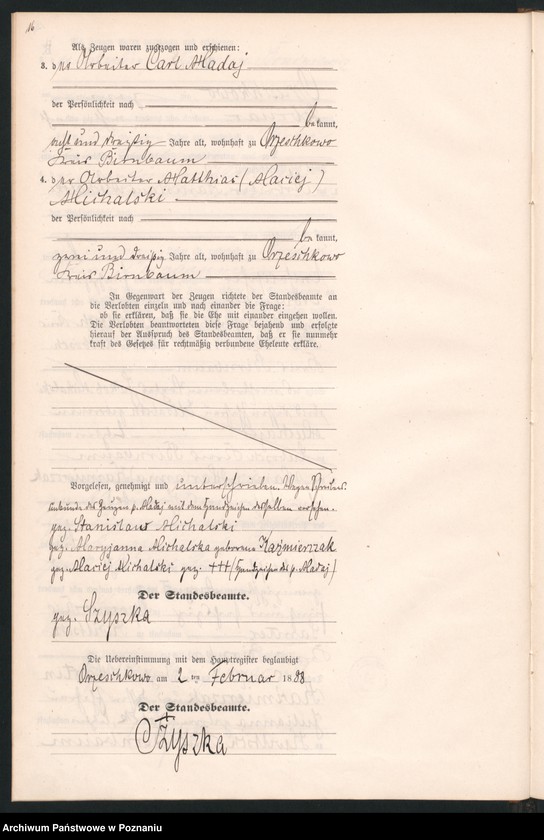 16
Als Zeugen waren zugezogen und erschienen:
3. der Arbeiter Carl Madaj
der Persönlichkeit nach
bekannt,
acht und dreißig Jahre alt, wohnhaft zu Orzeschkowo
Kreis Birnbaum
4. der Arbeiter Matthias (Maciej)
Michalski
der Persönlichkeit nach
bekannt,
zwei und dreißig Jahre alt, wohnhaft zu Orzeschkowo
Kreis Birnbaum
In Gegenwart der Zeugen richtete der Standesbeamte an
die Verlobten einzeln und nach einander die Frage:
ob sie erklären, daß sie die Ehe mit einander eingehen wollen.
Die Verlobten beantworteten diese Frage bejahend und erfolgte
hierauf der Ausspruch des Standesbeamten, daß er sie nunmehr
kraft des Gesetzes für rechtmäßig verbundene Eheleute erkläre.
Vorgelesen, genehmigt und unterschrieben. Wegen Schreibens
unkunde des Zeugen p. Madaj mit dem Handzeichen desselben versehen.
gez. Stanislaus Michalski
gez. Maryjanna Michalska geborene Kaźmierczak
gez. Maciej Michalski gez. +++ (Handzeichen des p. Madaj)
Der Standesbeamte.
gez. Szyszka
Die Uebereinstimmung mit dem Hauptregister beglaubigt
Orzeschkowo am 2 ten Februar 1888
Der Standesbeamte.
Szyszka
Archiwum Państwowe w Poznaniu